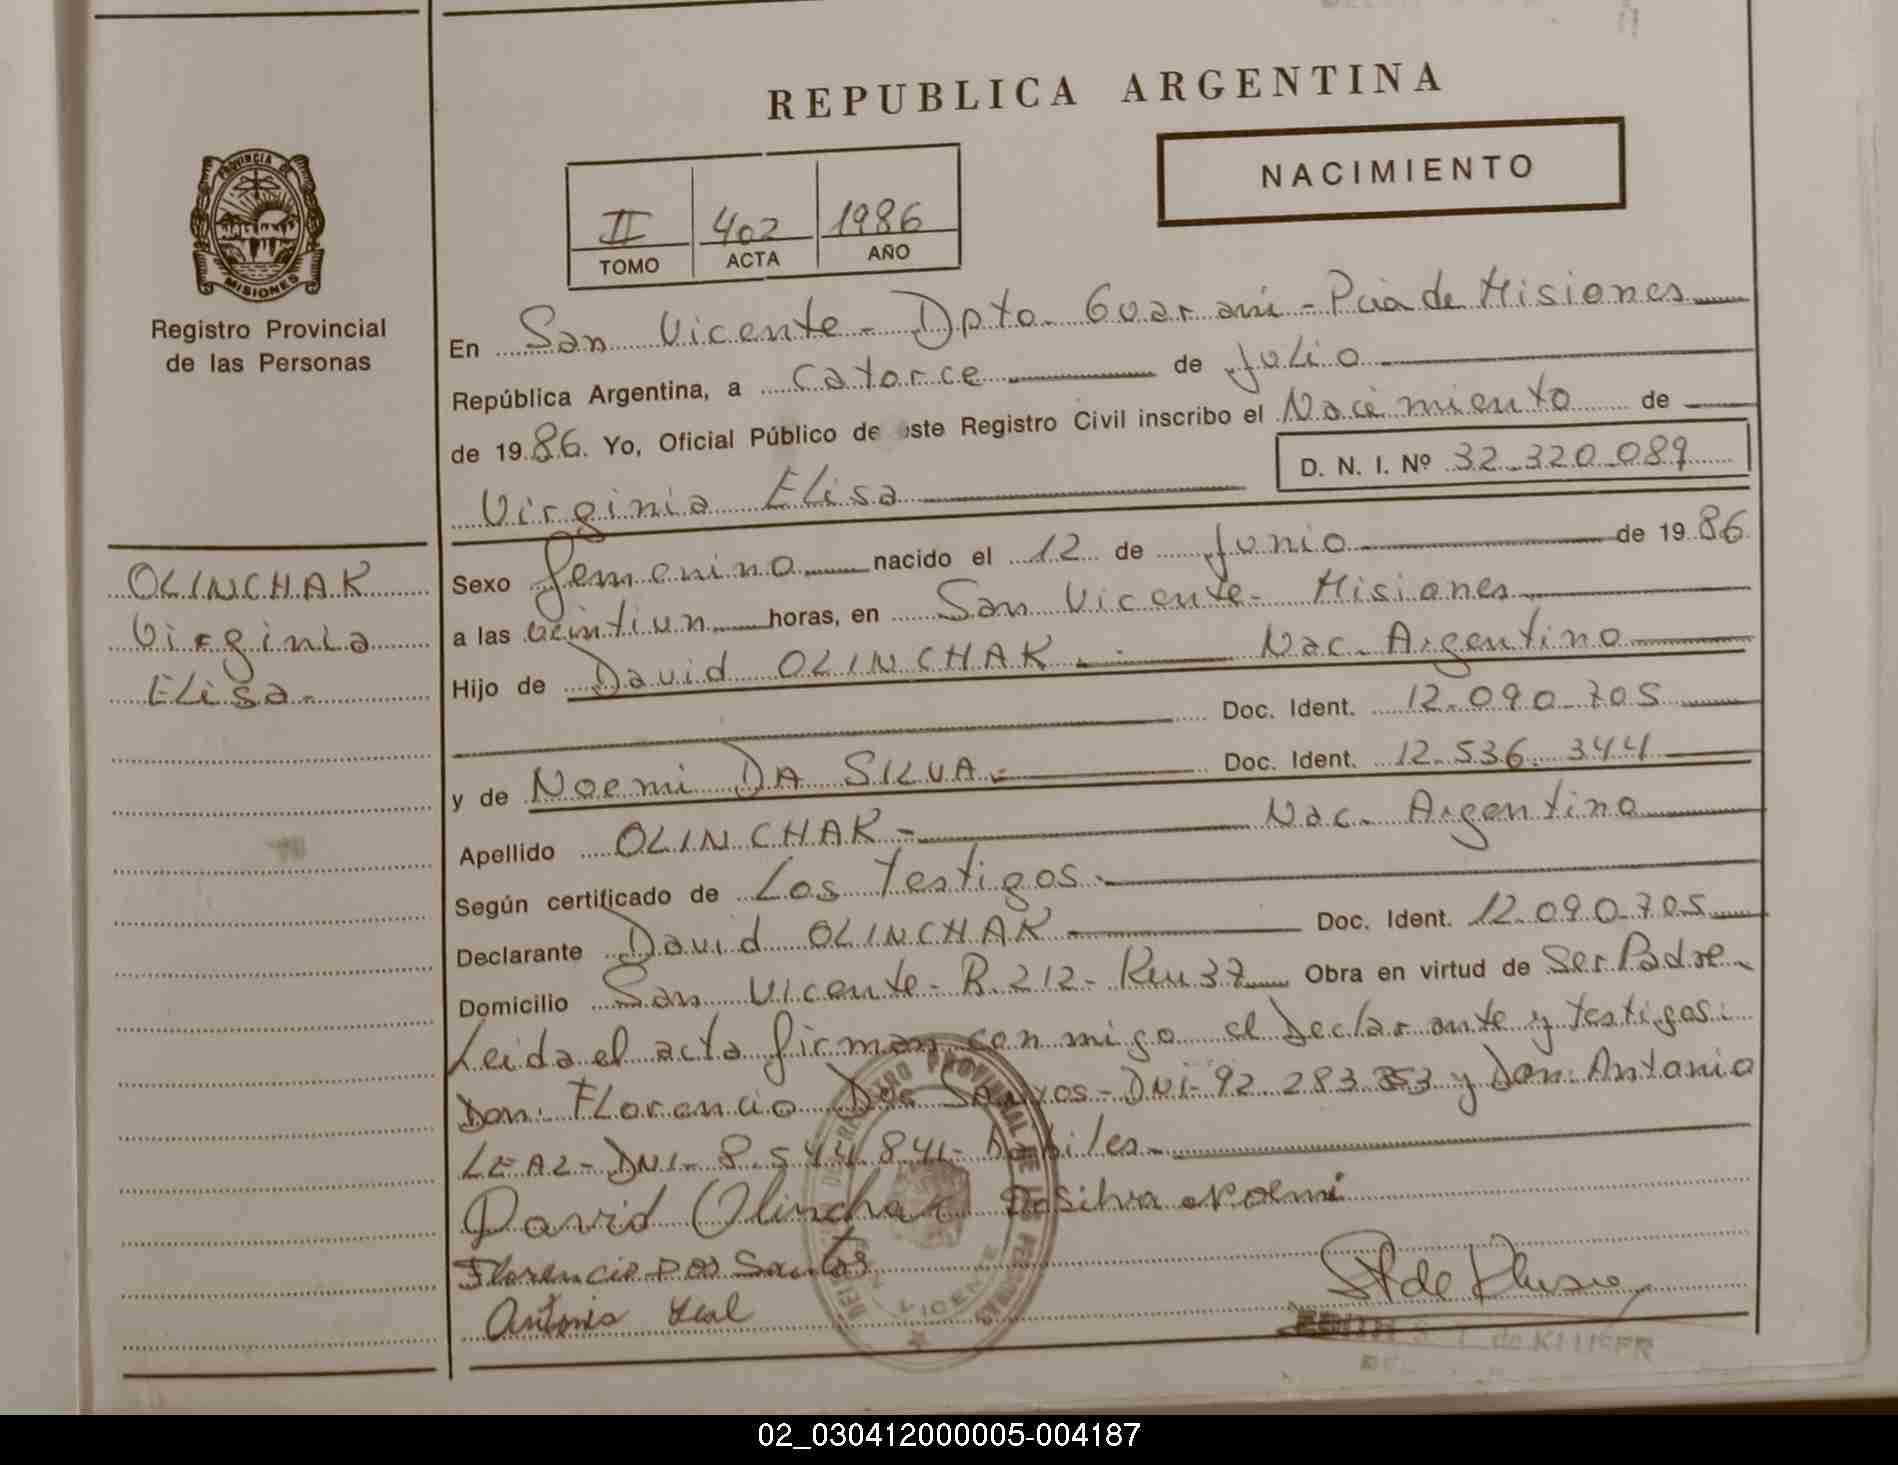 REPUBLICA ARGENTINA
NACIMIENTO
II 402 1986
TOMO ACTA AÑO
PROVINCIA DE
MISIONES
Registro Provincial
de las Personas
OLINCHAK
Virginia
Elisa.
En San Vicente - Dpto. Guaraní - Pcia de Misiones
República Argentina, a catorce de Julio
de 1986. Yo, Oficial Público de este Registro Civil inscribo el Nacimiento de
D. N. I. Nº 32.320.089
Virginia Elisa
Sexo femenino nacido el 12 de Junio de 1986
a las veintiun horas, en San Vicente - Misiones
Hijo de David OLINCHAK Nac. Argentino
Doc. Ident. 12.090.705
y de Noemi DA SILVA Doc. Ident. 12.536.344
Apellido OLINCHAK - Nac. Argentino
Según certificado de Los Testigos
Declarante David OLINCHAK Doc. Ident. 12.090.705
Domicilio San Vicente - R.212 - Km 37 Obra en virtud de Ser Padre
Leida el acta firman con migo el Declarante y testigos:
Don: Florencio Dos Santos - DNI - 92.283.353 y Don: Antonio
LEAL - DNI - 8.544.841 - habiles
David Olinchak Dasilva Noemi
Florencio Dos Santos
Antonio Leal
REGISTRO PROVINCIAL DE LAS PERSONAS
VICENTE
de KLUSER
02_030412000005-004187